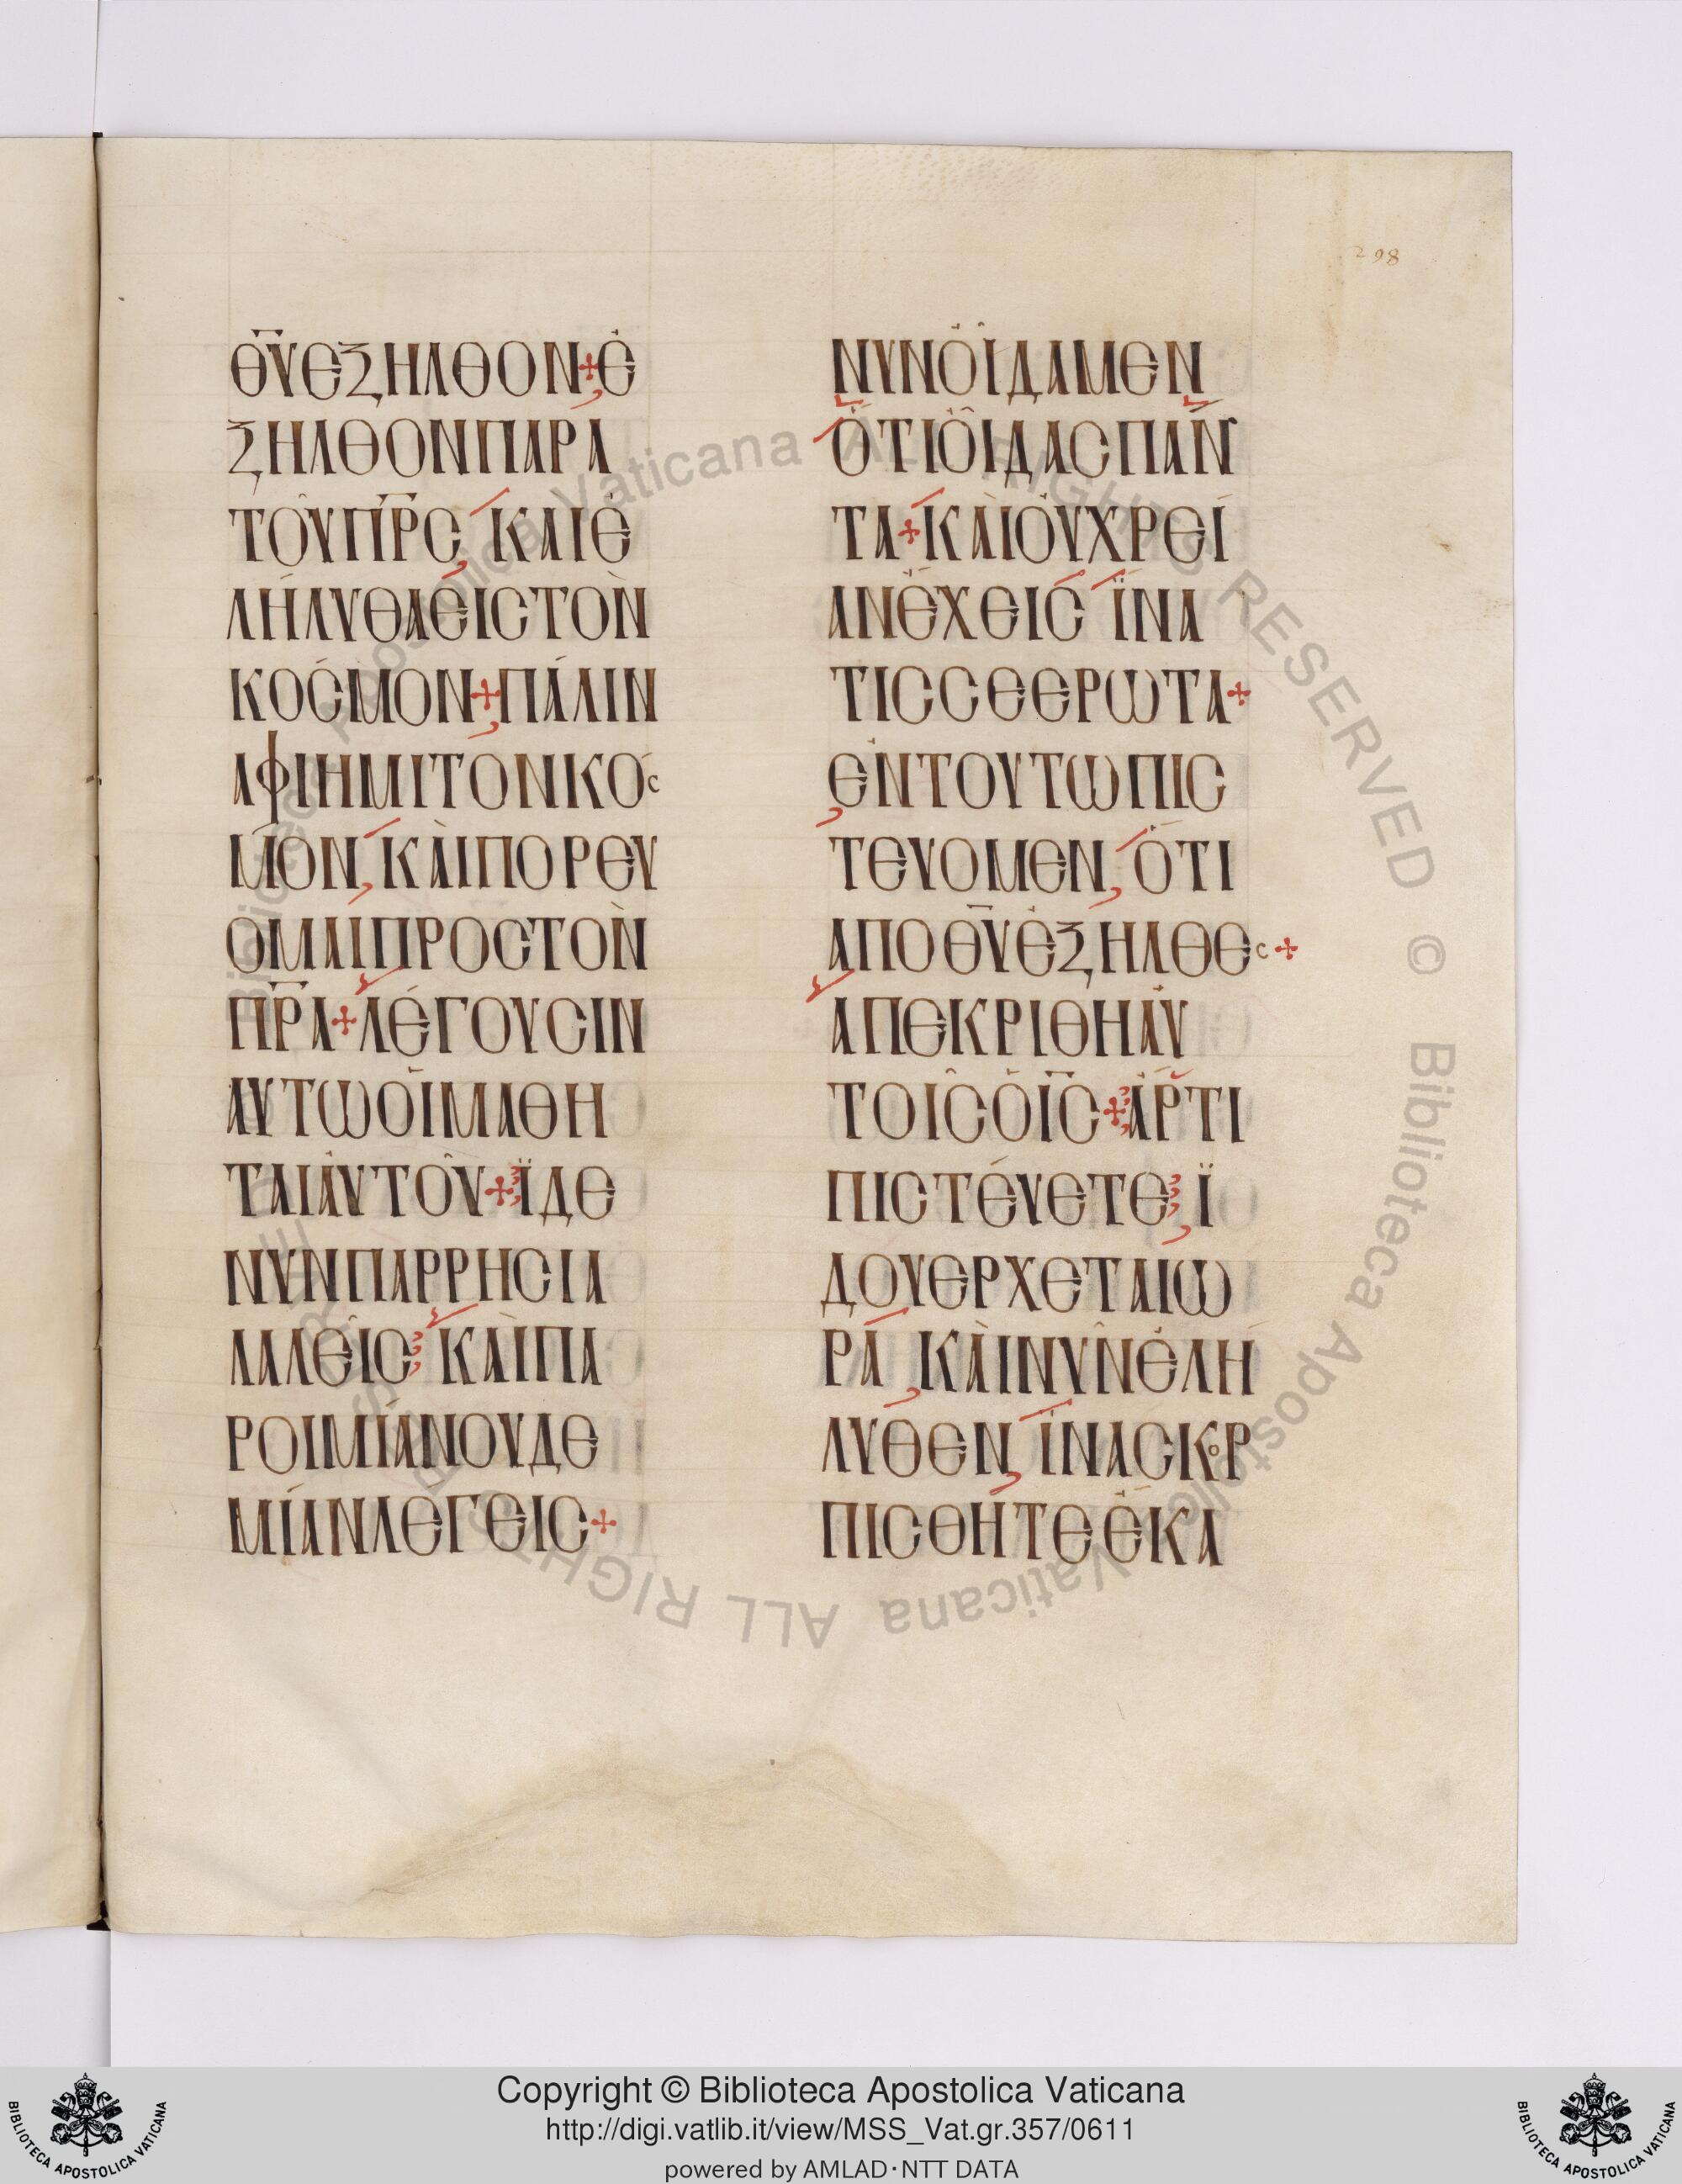 298
Θ̅Υ̅ΕΞΗΛΘΟΝ+Ἐ
ΞΗΛΘΟΝΠΑΡΑ
ΤΟῦΠ̅Ρ̅Σ̅, ΚΑΙἘ
ΛΉΛΥΘΑἐΙϹΤΟΝ̀
ΚΟϹΜΟΝ+ΠΆΛΙΝ
ΑΦΙΗΜΙΤΟΝΚΟϹ
ΜΟΝ, ΚΑῚΠΟΡΕΥ
ΟΜΑΙΠΡΟϹΤΟΝ̀
Π̅Ρ̅Α+ΛΈΓΟΥϹΙΝ
ΑΥΤΩΟΙΜΑΘΗ
ΤΑΙΑΥΤΟῦ+ΪΔΕ
ΝΥΝΠΑΡΡΗϹΙΑ
ΛΑΛΕῖϹ ΚΑῚΠΑ
ΡΟΙΜΊΑΝΟΥΔΕ
ΜΊΑΝΛΕΓΕΙϹ+
ΝΥΝΟἶΔΑΜΕΝ
ὍΤΙΟἶΔΑϹΠΑΝ
ΤΑ+ΚΑῚΟΥΧΡΕΊ
ΑΝἜΧΕΙϹ ΪΝΑ
ΤΙϹϹΕΕΡΩΤΑ+
ἘΝΤΟΥΤΩΠΙϹ
ΤΕΥΟΜΕΝ, ὍΤΙ
ΑΠΟΘ̅Υ̅ἘΞΗΛΘΕϹ+
ΑΠΕΚΡΙΘΗΑΥ
ΤΟΙϹΟΙ̅Ϲ̅+ΑΡΤΙ
ΠΙϹΤΈΥΕΤΕ, Ϊ
ΔΟΥΕΡΧΕΤΑΙΩ
ΡΑ, ΚΑῚΝΥΝἘΛΗ
ΛΥΘΕΝ, ΪΝΑϹΚΟΡ
ΠΙϹΘΗΤΕἙΚΑ
Biblioteca Apostolica Vaticana ALL RIGHTS RESERVED © Biblioteca Apostolica Vaticana ALL RIGHTS RESERVED
Copyright © Biblioteca Apostolica Vaticana
http://digi.vatlib.it/view/MSS_Vat.gr.357/0611
powered by AMLAD·NTT DATA
BIBLIOTECA APOSTOLICA VATICANA
BIBLIOTECA APOSTOLICA VATICANA